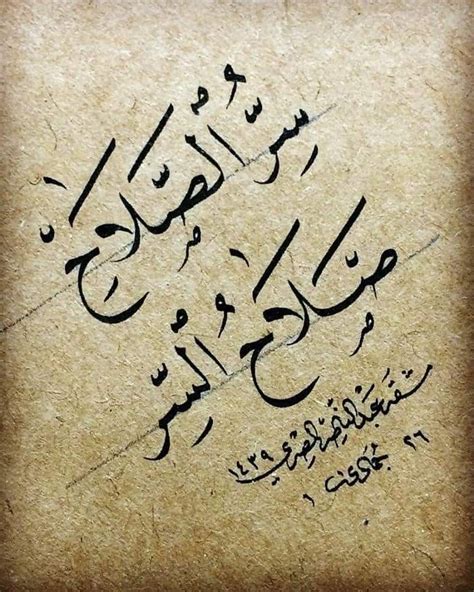 سِرُّ الْصَّلَاحِ
صَلَاحُ الْسِّرِّ
مشقه عبدالناصر المصري ١٤٣٩
٢٦ جمادى ١